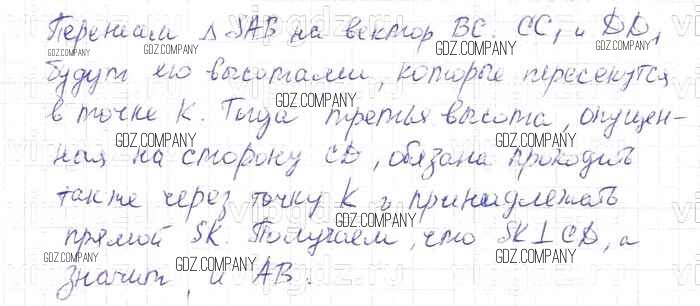 Перенесём △SAB на вектор BC. CC₁ и DD₁
GDZ.COMPANY
GDZ.COMPANY
GDZ.COMPANY
будут его высотами, которые пересекутся
GDZ.COMPANY
в точке K. Тогда третья высота, опущен-
GDZ.COMPANY
GDZ.COMPANY
ная на сторону CD, обязана проходить
также через точку K и принадлежать
GDZ.COMPANY
прямой SK. Получаем, что SK⊥CD, а
GDZ.COMPANY
GDZ.COMPANY
значит, и AB.